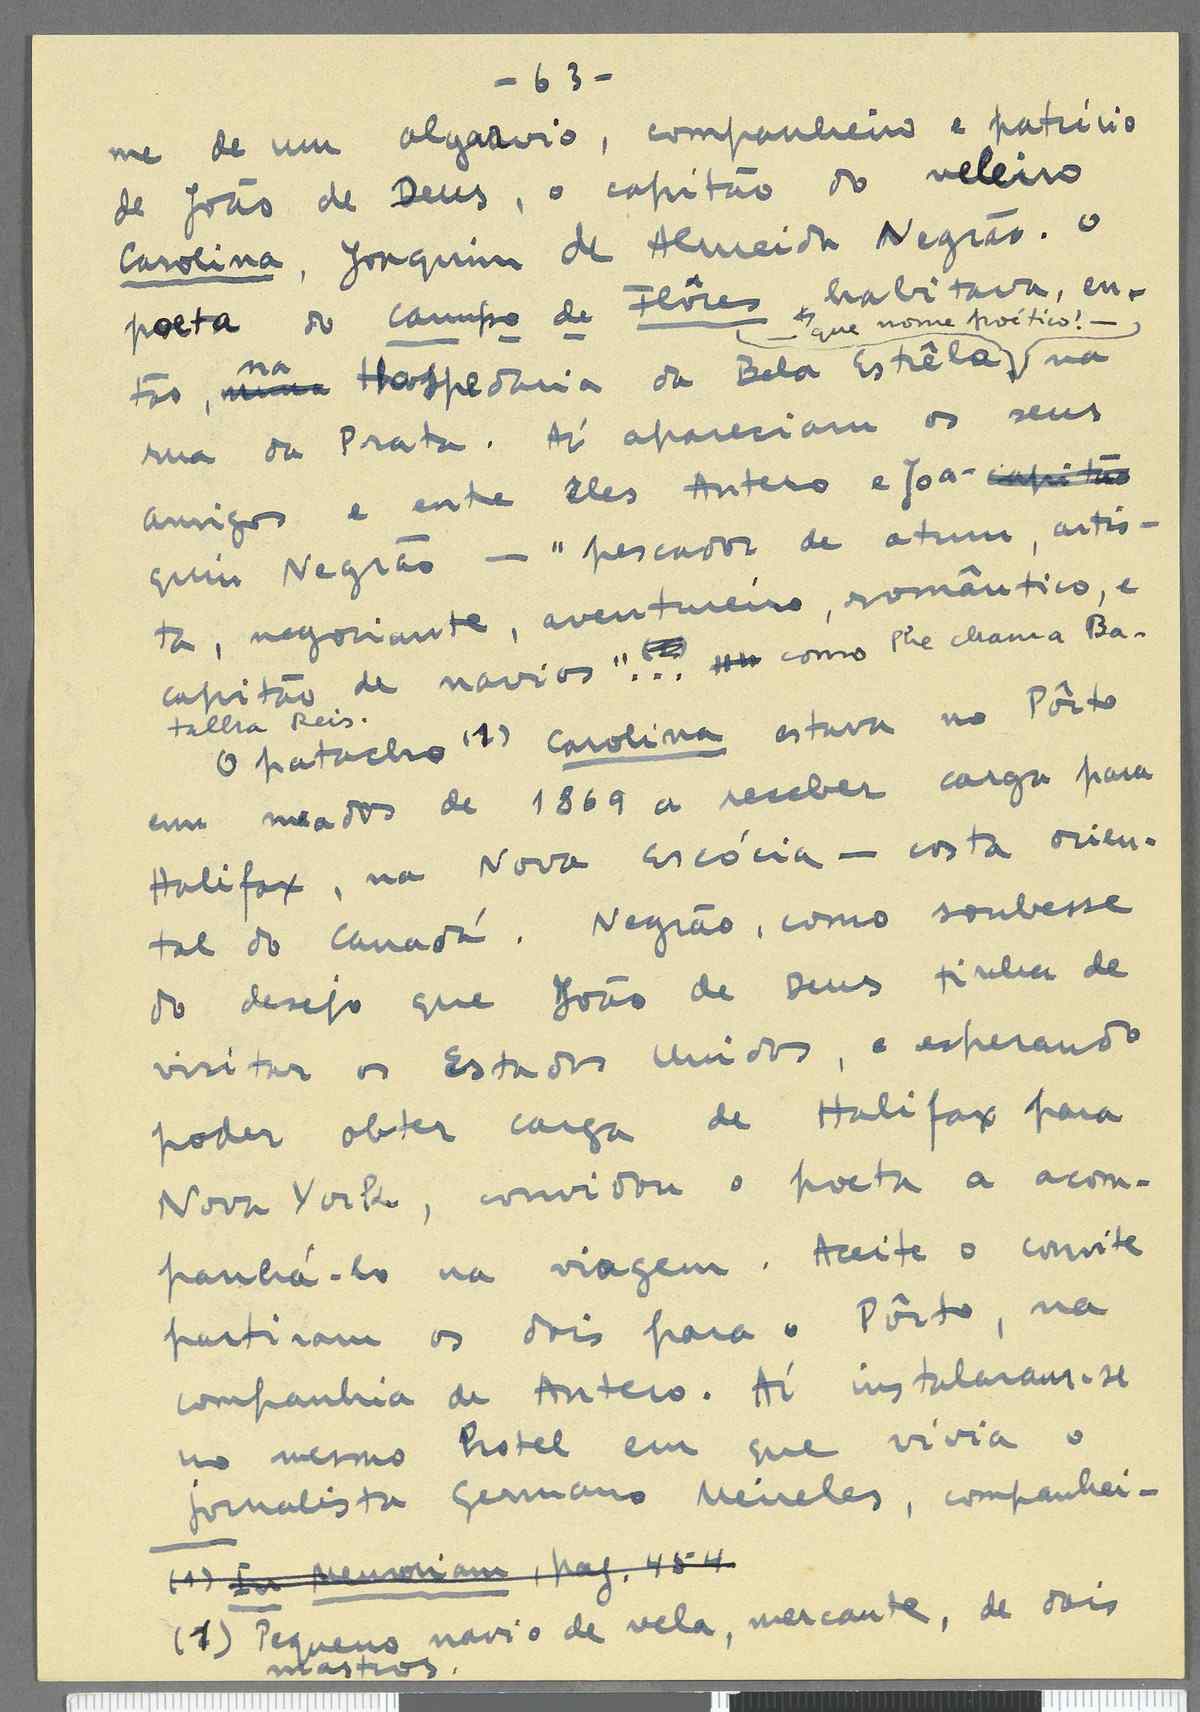 - 63 -
me de um algarvio, companheiro e patrício
de João de Deus, o capitão do veleiro
Carolina, Joaquim de Almeida Negrão. O
poeta do Campo de Flôres habitava, en-
— que nome poético! —
tão, na Hospedaria da Bela Estrêla, na
rua da Prata. Aí apareciam os seus
amigos e entre êles Antero e Joa- capitão
quim Negrão — "pescador de atum, artis-
ta, negociante, aventureiro, romântico, e
capitão de navios"... como lhe chama Ba-
talha Reis.
O patacho (1) Carolina estava no Pôrto
em meados de 1869 a receber carga para
Halifax, na Nova Escócia — costa orien-
tal do Canadá. Negrão, como soubesse
do desejo que João de Deus tinha de
visitar os Estados Unidos, e esperando
poder obter carga de Halifax para
Nova York, convidou o poeta a acom-
panhá-lo na viagem. Aceite o convite
partiram os dois para o Pôrto, na
companhia de Antero. Aí instalaram-se
no mesmo hotel em que vivia o
jornalista Germano Meireles, companhei-
(1) In Memoriam, pag. 454.
(1) Pequeno navio de vela, mercante, de dois
mastros.